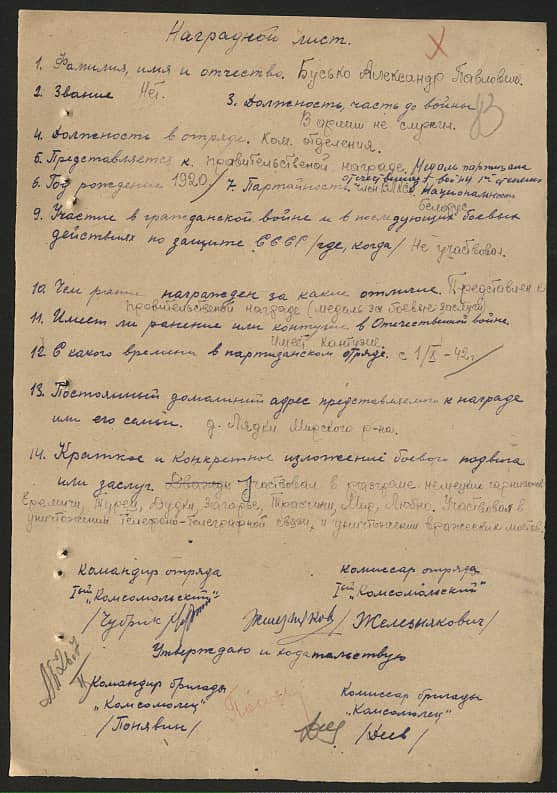 Наградной лист.
1. Фамилия, имя и отчество. Бусько Александр Павлович.
2. Звание Нет. 3. Должность, часть до войны
В армии не служил.
4. Должность в отряде. Ком. отделения.
5. Представляется к правительственой награде Медаль партизана
отечественной войны 1й степени
6. Год рождения 1920 7. Партийность член ВЛКСМ. Национальность
белорус
9. Участие в гражданской войне и в последующих боевых
действиях по защите СССР /где, когда/ Не участвовал.
10. Чем ранее награжден за какие отличие. Представлен к
правительственой награде (медаль за боевые заслуги)
11. Имеет ли ранение или контузию в Отечественной войне.
Имеет контузию.
12. С какого времени в партизанском отряде. с 1/X-42г.
13. Постоянный домашний адрес представляемого к награде
или его семьи. д. Лядки Мирского р-на.
14. Краткое и конкретное изложение боевого подвига
или заслуг. Участвовал в разгроме немецких гарнизонов
Еремичи, Турец, Дудки, Загорье, Мир, Любна. Участвовал в
уничтожении телефоно-телеграфной связи, и уничтожении вражеских мостов.
Командир отряда Комиссар отряда
Iый „Комсомольский" Iый „Комсомольский"
/Чубрик/ /Железнякович/
Утверждаю и ходатайствую
Командир бригады Комиссар бригады
„Комсомолец" „Комсомолец"
/Понявин/ /Дев/